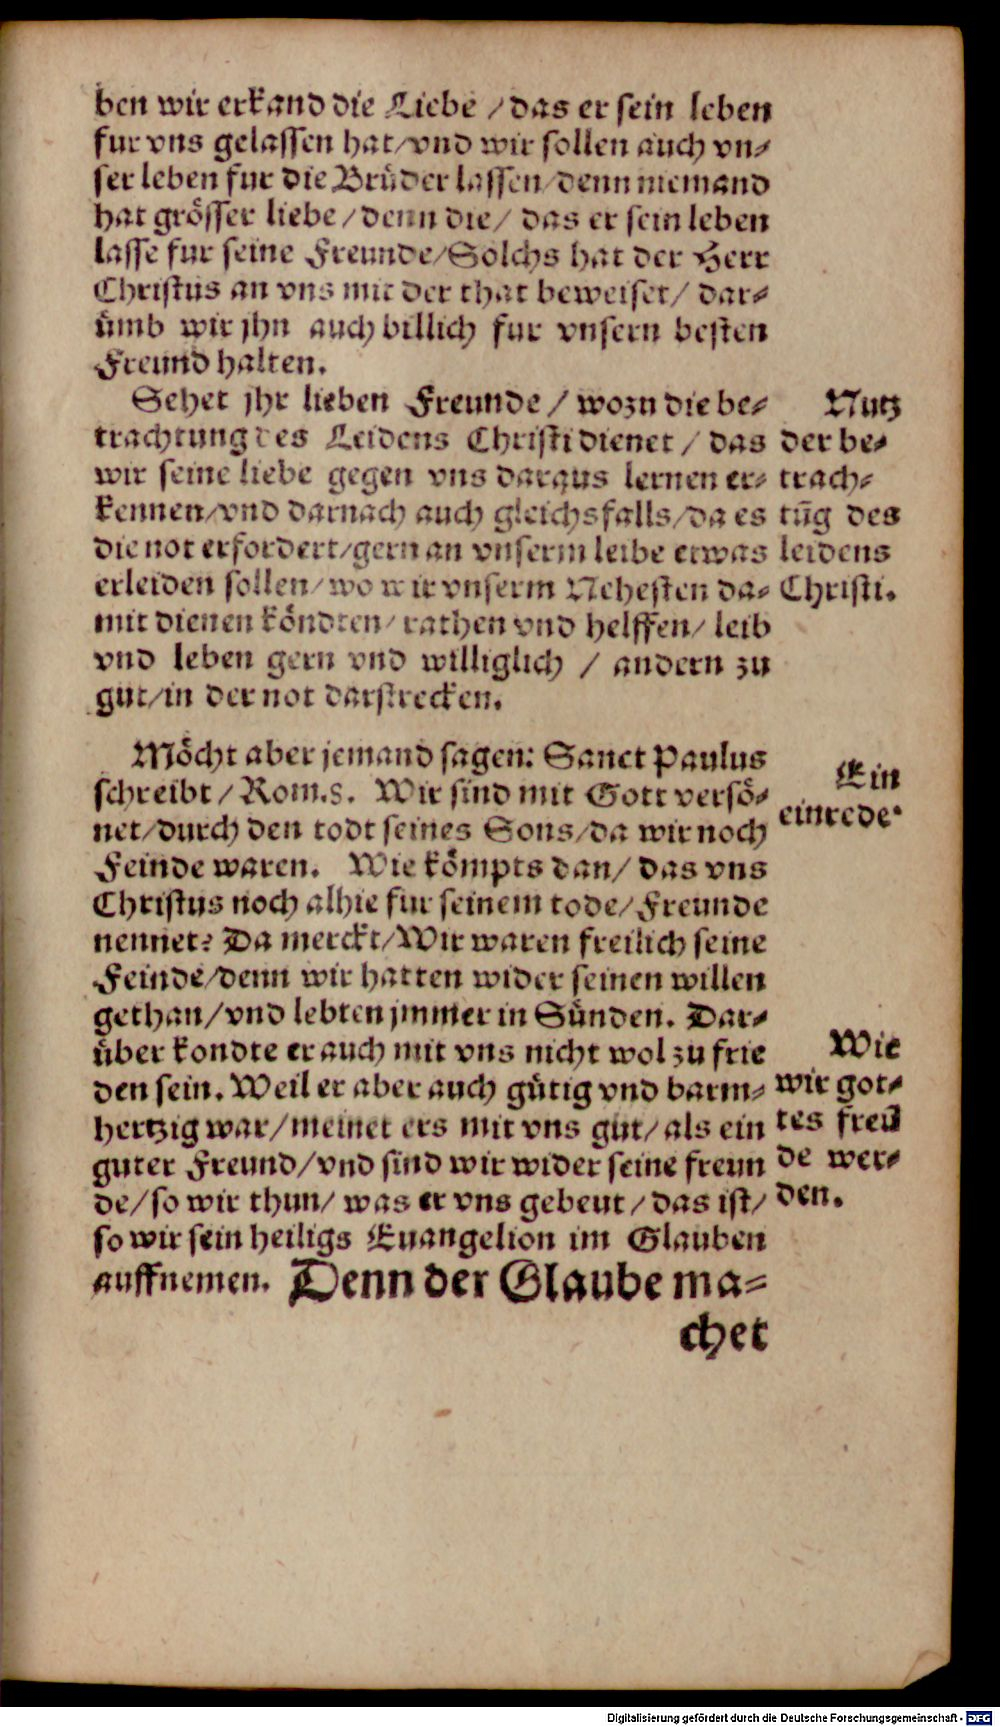 ben wir erkand die Liebe / das er sein leben
fur vns gelassen hat / vnd wir sollen auch vn-
ser leben fur die Brüder lassen / denn niemand
hat grösser liebe / denn die / das er sein leben
lasse fur seine Freunde / Solchs hat der Herr
Christus an vns mit der that beweiset / dar-
ümb wir jhn auch billich fur vnsern besten
Freund halten.
Sehet jhr lieben Freunde / wozu die be-
trachtung des Leidens Christi dienet / das
wir seine liebe gegen vns daraus lernen er-
kennen / vnd darnach auch gleichsfalls / da es
die not erfordert / gern an vnserm leibe etwas
erleiden sollen / wo wir vnserm Nehesten da-
mit dienen köndten / rathen vnd helffen / leib
vnd leben gern vnd williglich / andern zu
gut / in der not darstrecken.
Nutz
der be-
trach-
tūg des
leidens
Christi.
Möcht aber jemand sagen: Sanct Paulus
schreibt / Rom.5. Wir sind mit Gott versö-
net / durch den todt seines Sons / da wir noch
Feinde waren. Wie kömpts dan / das vns
Christus noch alhie fur seinem tode / Freunde
nennet? Da merckt / Wir waren freilich seine
Feinde / denn wir hatten wider seinen willen
gethan / vnd lebten jmmer in Sünden. Dar-
über kondte er auch mit vns nicht wol zu frie
den sein. Weil er aber auch gütig vnd barm-
hertzig war / meinet ers mit vns gut / als ein
guter Freund / vnd sind wir wider seine freun
de / so wir thun / was er vns gebeut / das ist /
so wir sein heiligs Euangelion im Glauben
auffnemen. Denn der Glaube ma-
chet
Ein
einrede.
Wie
wir got-
tes freū
de wer-
den.
Digitalisierung gefördert durch die Deutsche Forschungsgemeinschaft - DFG